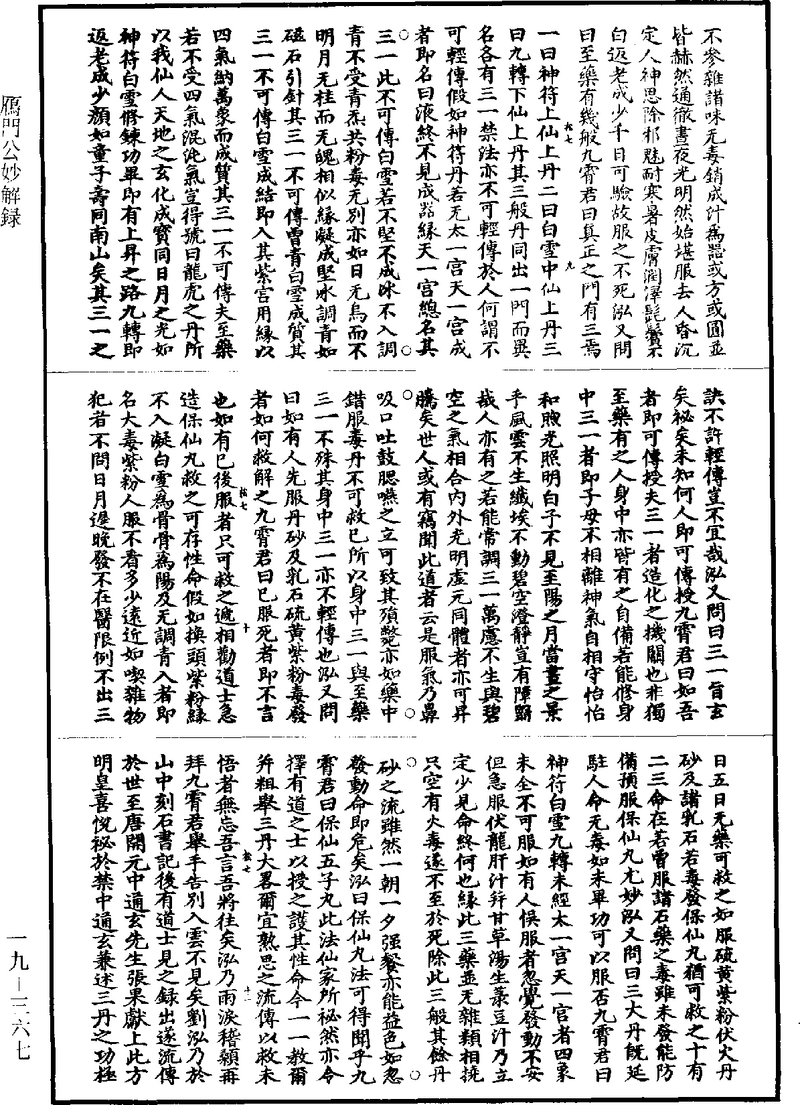 不參雜諸味无毒銷成汁為器或方或圓並
皆赫然通徹晝夜光明然始堪服去人昏沉
定人神思除邪魅耐寒暑皮膚潤澤髭鬢不
白返老成少千日可驗故服之不死泓又問
曰至藥有幾般九霄君曰真正之門有三焉
一曰神符上仙上丹二曰白雪中仙上丹三
曰九轉下仙上丹其三般丹同出一門而異
名各有三一禁法亦不可輕傳於人何謂不
可輕傳假如神符丹若无太一宮天一宮成
者即名曰液終不見成器緣天一宮總名其
三一此不可傳白雪若不堅不成冰不入調
青不受青炁共粉毒无別亦如日无烏而不
明月无桂而无魄相似緣凝成堅冰調青如
磁石引針其三一不可傳曾青白雪成質其
三一不可傳白雪成結即入其紫宮用緣以
四氣納萬象而成質其三一不可傳夫至藥
若不受四氣混沌氣豈得號曰龍虎之丹所
以我仙人天地之玄化成寶同日月之光如
神符白雪修鍊功畢即有上昇之路九轉即
返老成少顏如童子壽同南山矣其三一之
訣不許輕傳豈不宜哉泓又問曰三一旨玄
矣祕矣未知何人即可傳授九霄君曰如吾
者即可傳授夫三一者造化之機關也非獨
至藥有之人身中亦皆有之自備若能修身
中三一者即子母不相離神氣自相守怡怡
和煦光照明白子不見至陽之月當晝之景
乎風雲不生纖埃不動碧空澄靜豈有障翳
哉人亦有之若能常調三一萬慮不生與碧
空之氣相合內外光明虛元同體者亦可昇
騰矣世人或有竊聞此道者云是服氣乃鼻
吸口吐鼓腮嚥之立可致其殞斃亦如藥中
錯服毒丹不可救已所以身中三一與至藥
三一不殊其身中三一亦不輕傳也泓又問
曰如有人先服丹砂及乳石硫黃紫粉毒發
者如何救解之九霄君曰已服死者即不言
也如有已後服者只可救之遞相勸道士急
造保仙九救之可存性命假如換頭紫粉緣
不入凝白雪為骨骨為陽及无調青入者即
名大毒紫粉人服不看多少遠近如喫雜物
犯若不問日月遲晚發不在醫限例不出三
日五日无藥可救之如服硫黃紫粉伏火丹
砂及諸乳石若毒發保仙丸猶可救之十有
二三命在若曾服諸石藥之毒雖未發能防
備預服保仙丸尤妙泓又問曰三大丹既延
駐人命无毒如未畢功可以服否九霄君曰
神符白雪九轉未經太一宮天一宮者四象
未全不可服如有人悞服者忽覺發動不安
但急服伏龍肝汁并甘草湯生菉豆汁乃立
定少見命終何也緣此三藥並无雜類相撓
只空有火毒遂不至於死除此三般其餘丹
砂之流雖然一朝一夕强餐亦能益色如忽
發動命即危矣泓曰保仙九法可得聞乎九
霄君曰保仙五子丸此法仙家所祕然亦令
擇有道之士以授之護其性命今一一教爾
并粗舉三丹大畧爾宜熟思之流傳以救未
悟者無忘吾言吾將往矣泓乃雨淚稽顙再
拜九霄君舉手告別入雲不見矣劉泓乃於
山中刻石書記後有道士見之録出遂流傳
於世至唐開元中通玄先生張果獻上此方
明皇喜悅祕於禁中通玄兼述三丹之功極
雁門公妙解録
一九－三六七